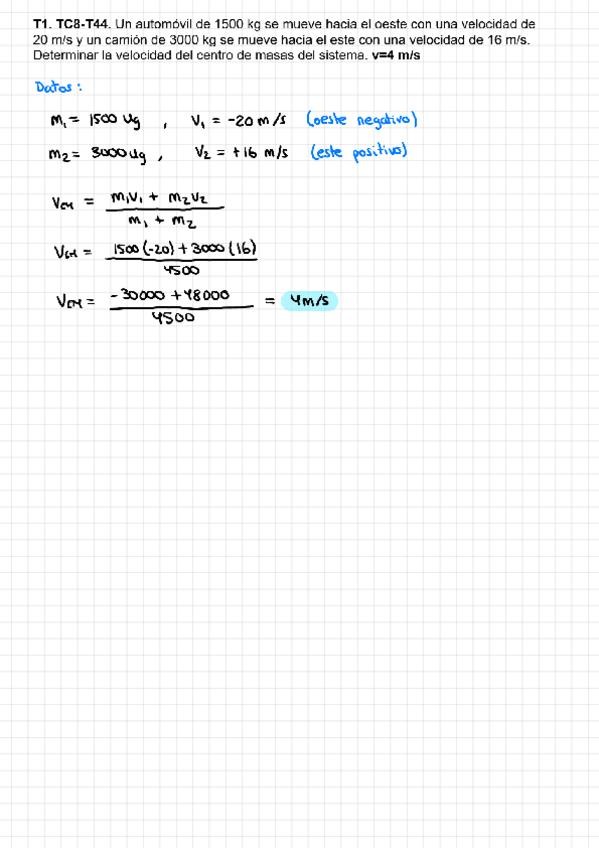 T1. TC8-T44. Un automóvil de 1500 kg se mueve hacia el oeste con una velocidad de
20 m/s y un camión de 3000 kg se mueve hacia el este con una velocidad de 16 m/s.
Determinar la velocidad del centro de masas del sistema. v=4 m/s
Datos:
m₁ = 1500 kg , V₁ = -20 m/s (oeste negativo)
m₂ = 3000 kg , V₂ = +16 m/s (este positivo)
V_CM = (m₁V₁ + m₂V₂) / (m₁ + m₂)
V_CM = (1500(-20) + 3000(16)) / 4500
V_CM = (-30000 + 48000) / 4500 = 4m/s